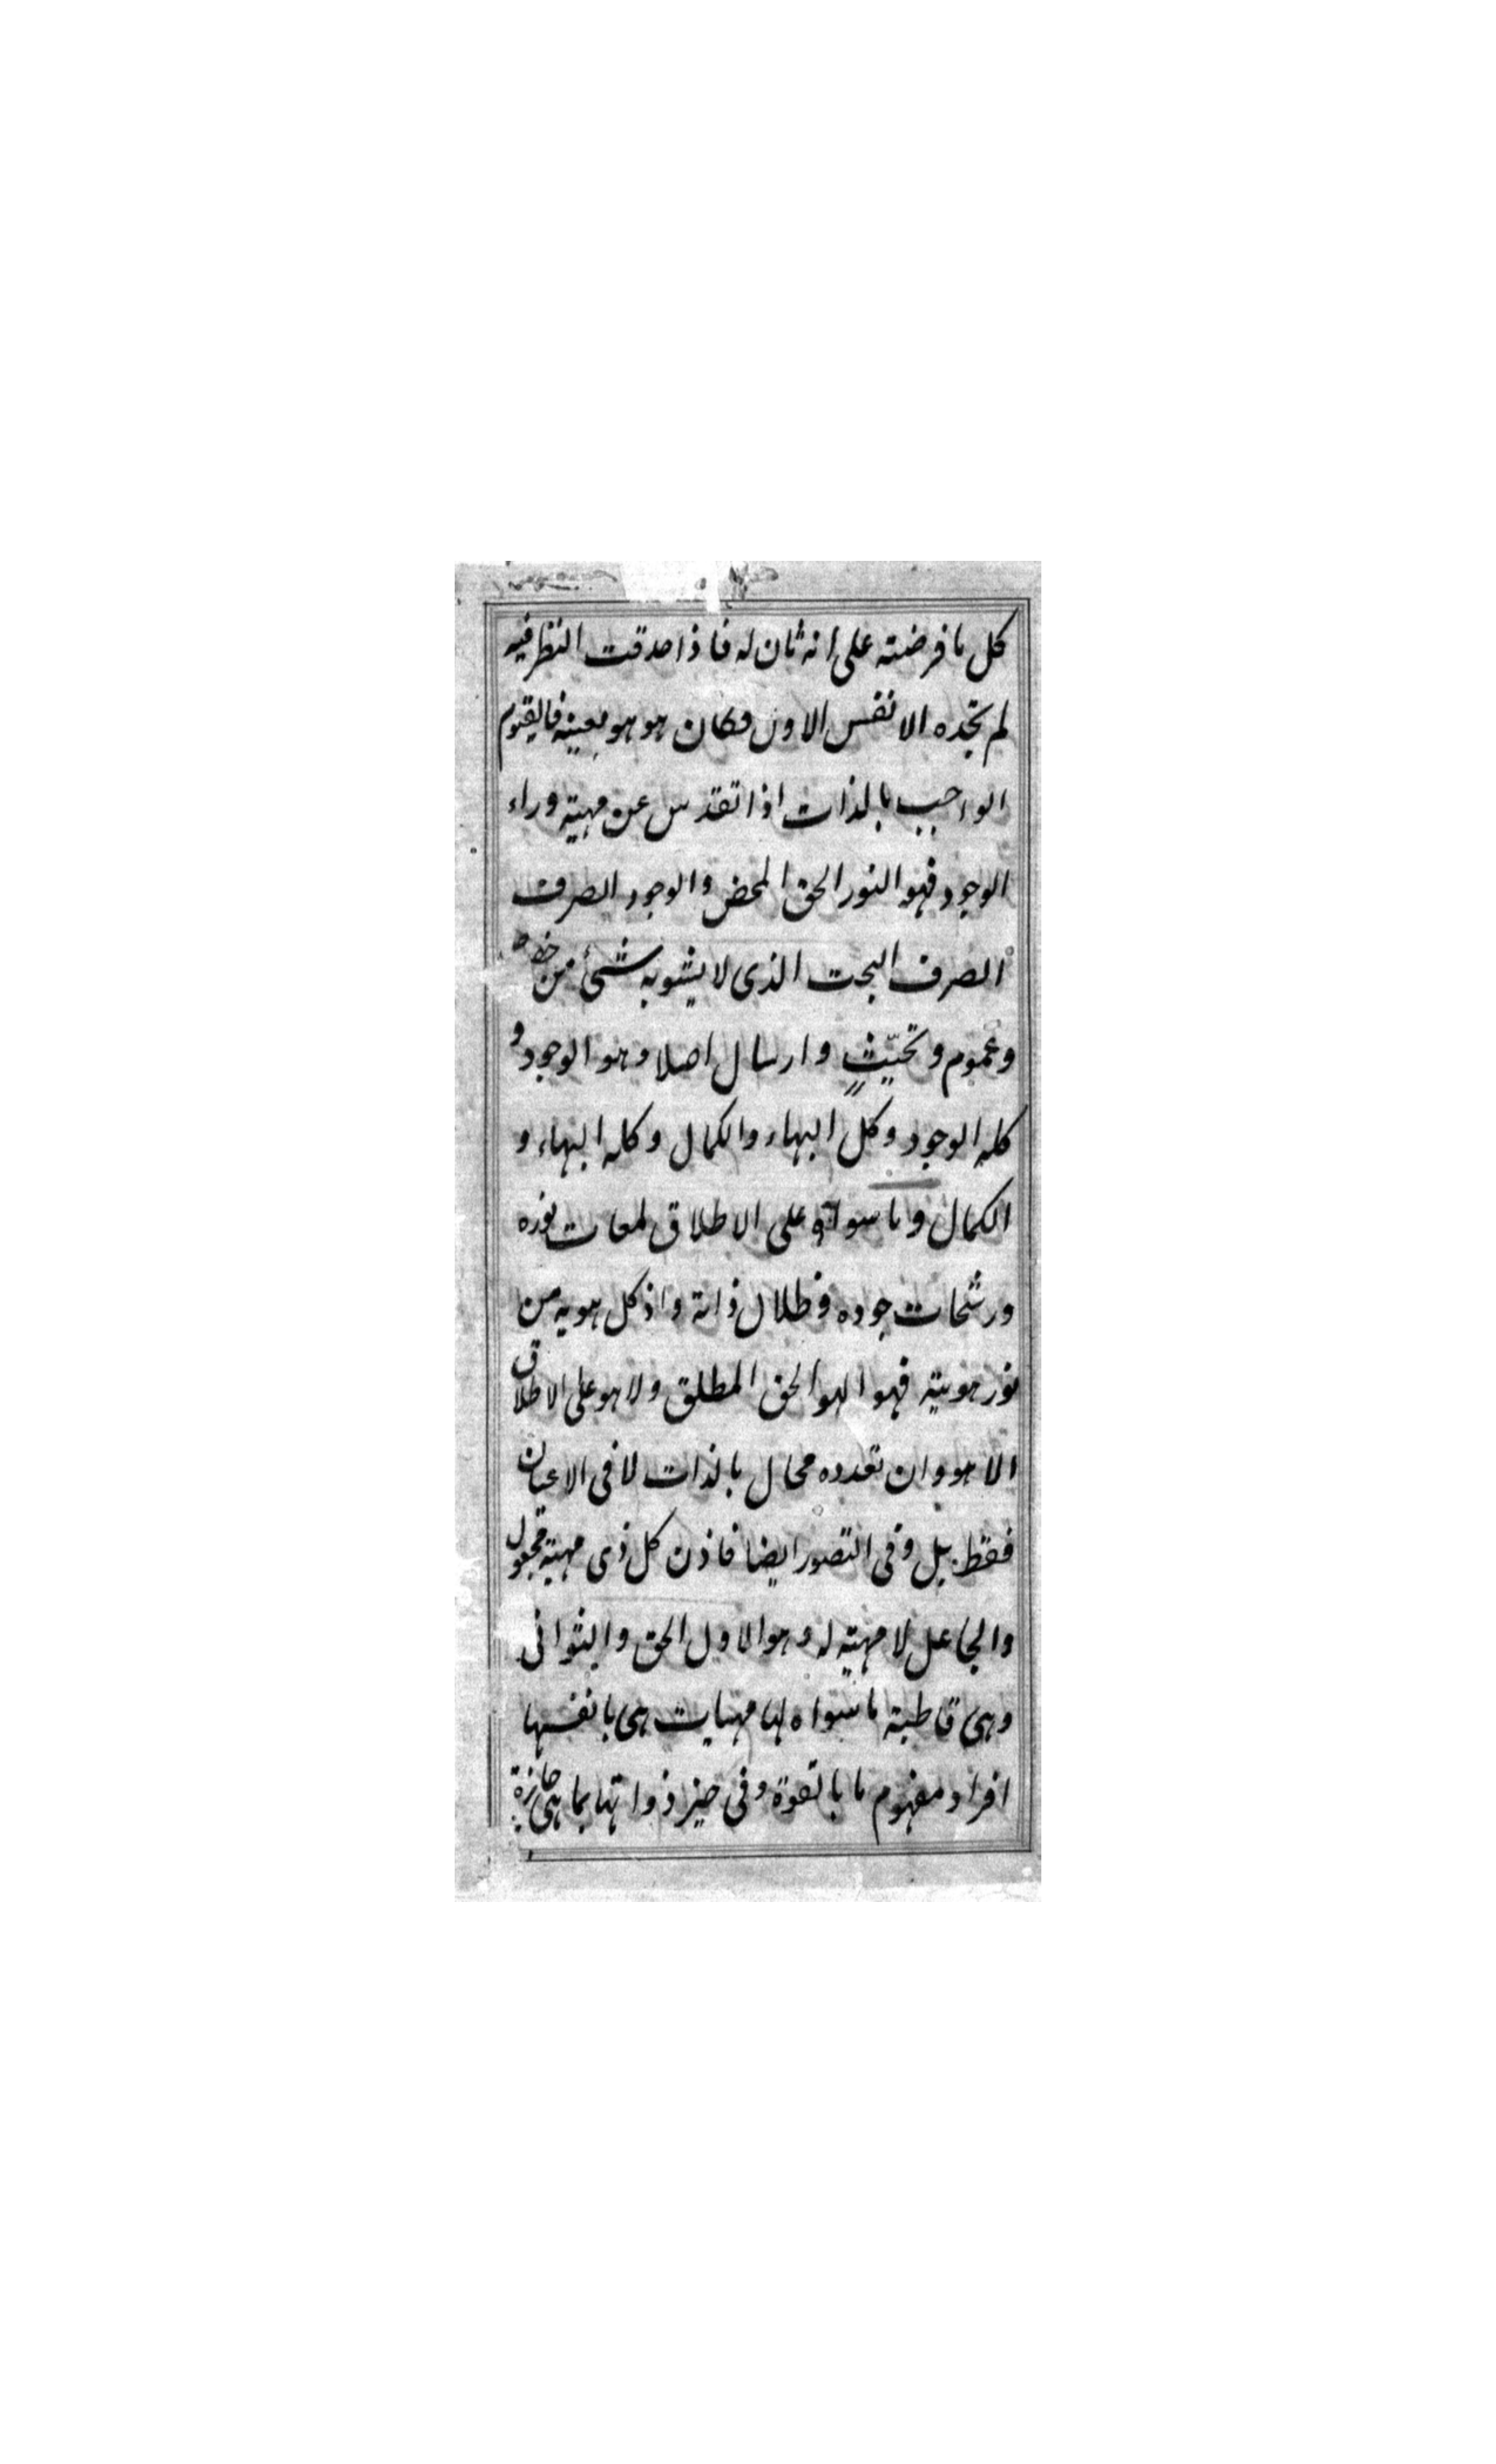 كل ما فرضته على انه ثان له فاذا حدقت النظر فيه
لم تجده الا نفس الاول فكان هو هو بعينه فالقيوم
الواجب بالذات اذا تقدس عن مهية وراء
الوجود فهو النور الحق المحض والوجود الصرف
الصرف البحت الذى لا يشوبه شئ من
وعموم وتحيّثٍ وارسال اصلا وهو الوجود و
كله الوجود وكل البهاء والكمال وكله البهاء و
الكمال وما سواه على الاطلاق لمعات نوره
ورشحات جوده وظلال ذاته واذ كل هوية من
نور هويته فهو الهو الحق المطلق ولا هو على الاطلاق
الا هو وان تعدده محال بالذات لا فى الاعيان
فقط بل وفى التصور ايضا فاذن كل ذى مهية مجعول
والجاعل لا مهية له وهو الاول الحق والثوانى
وهى قاطبة ما سواه لها مهيات هى بانفسها
افراد مفهوم ما بالقوة وفى حيز ذواتها بما هى